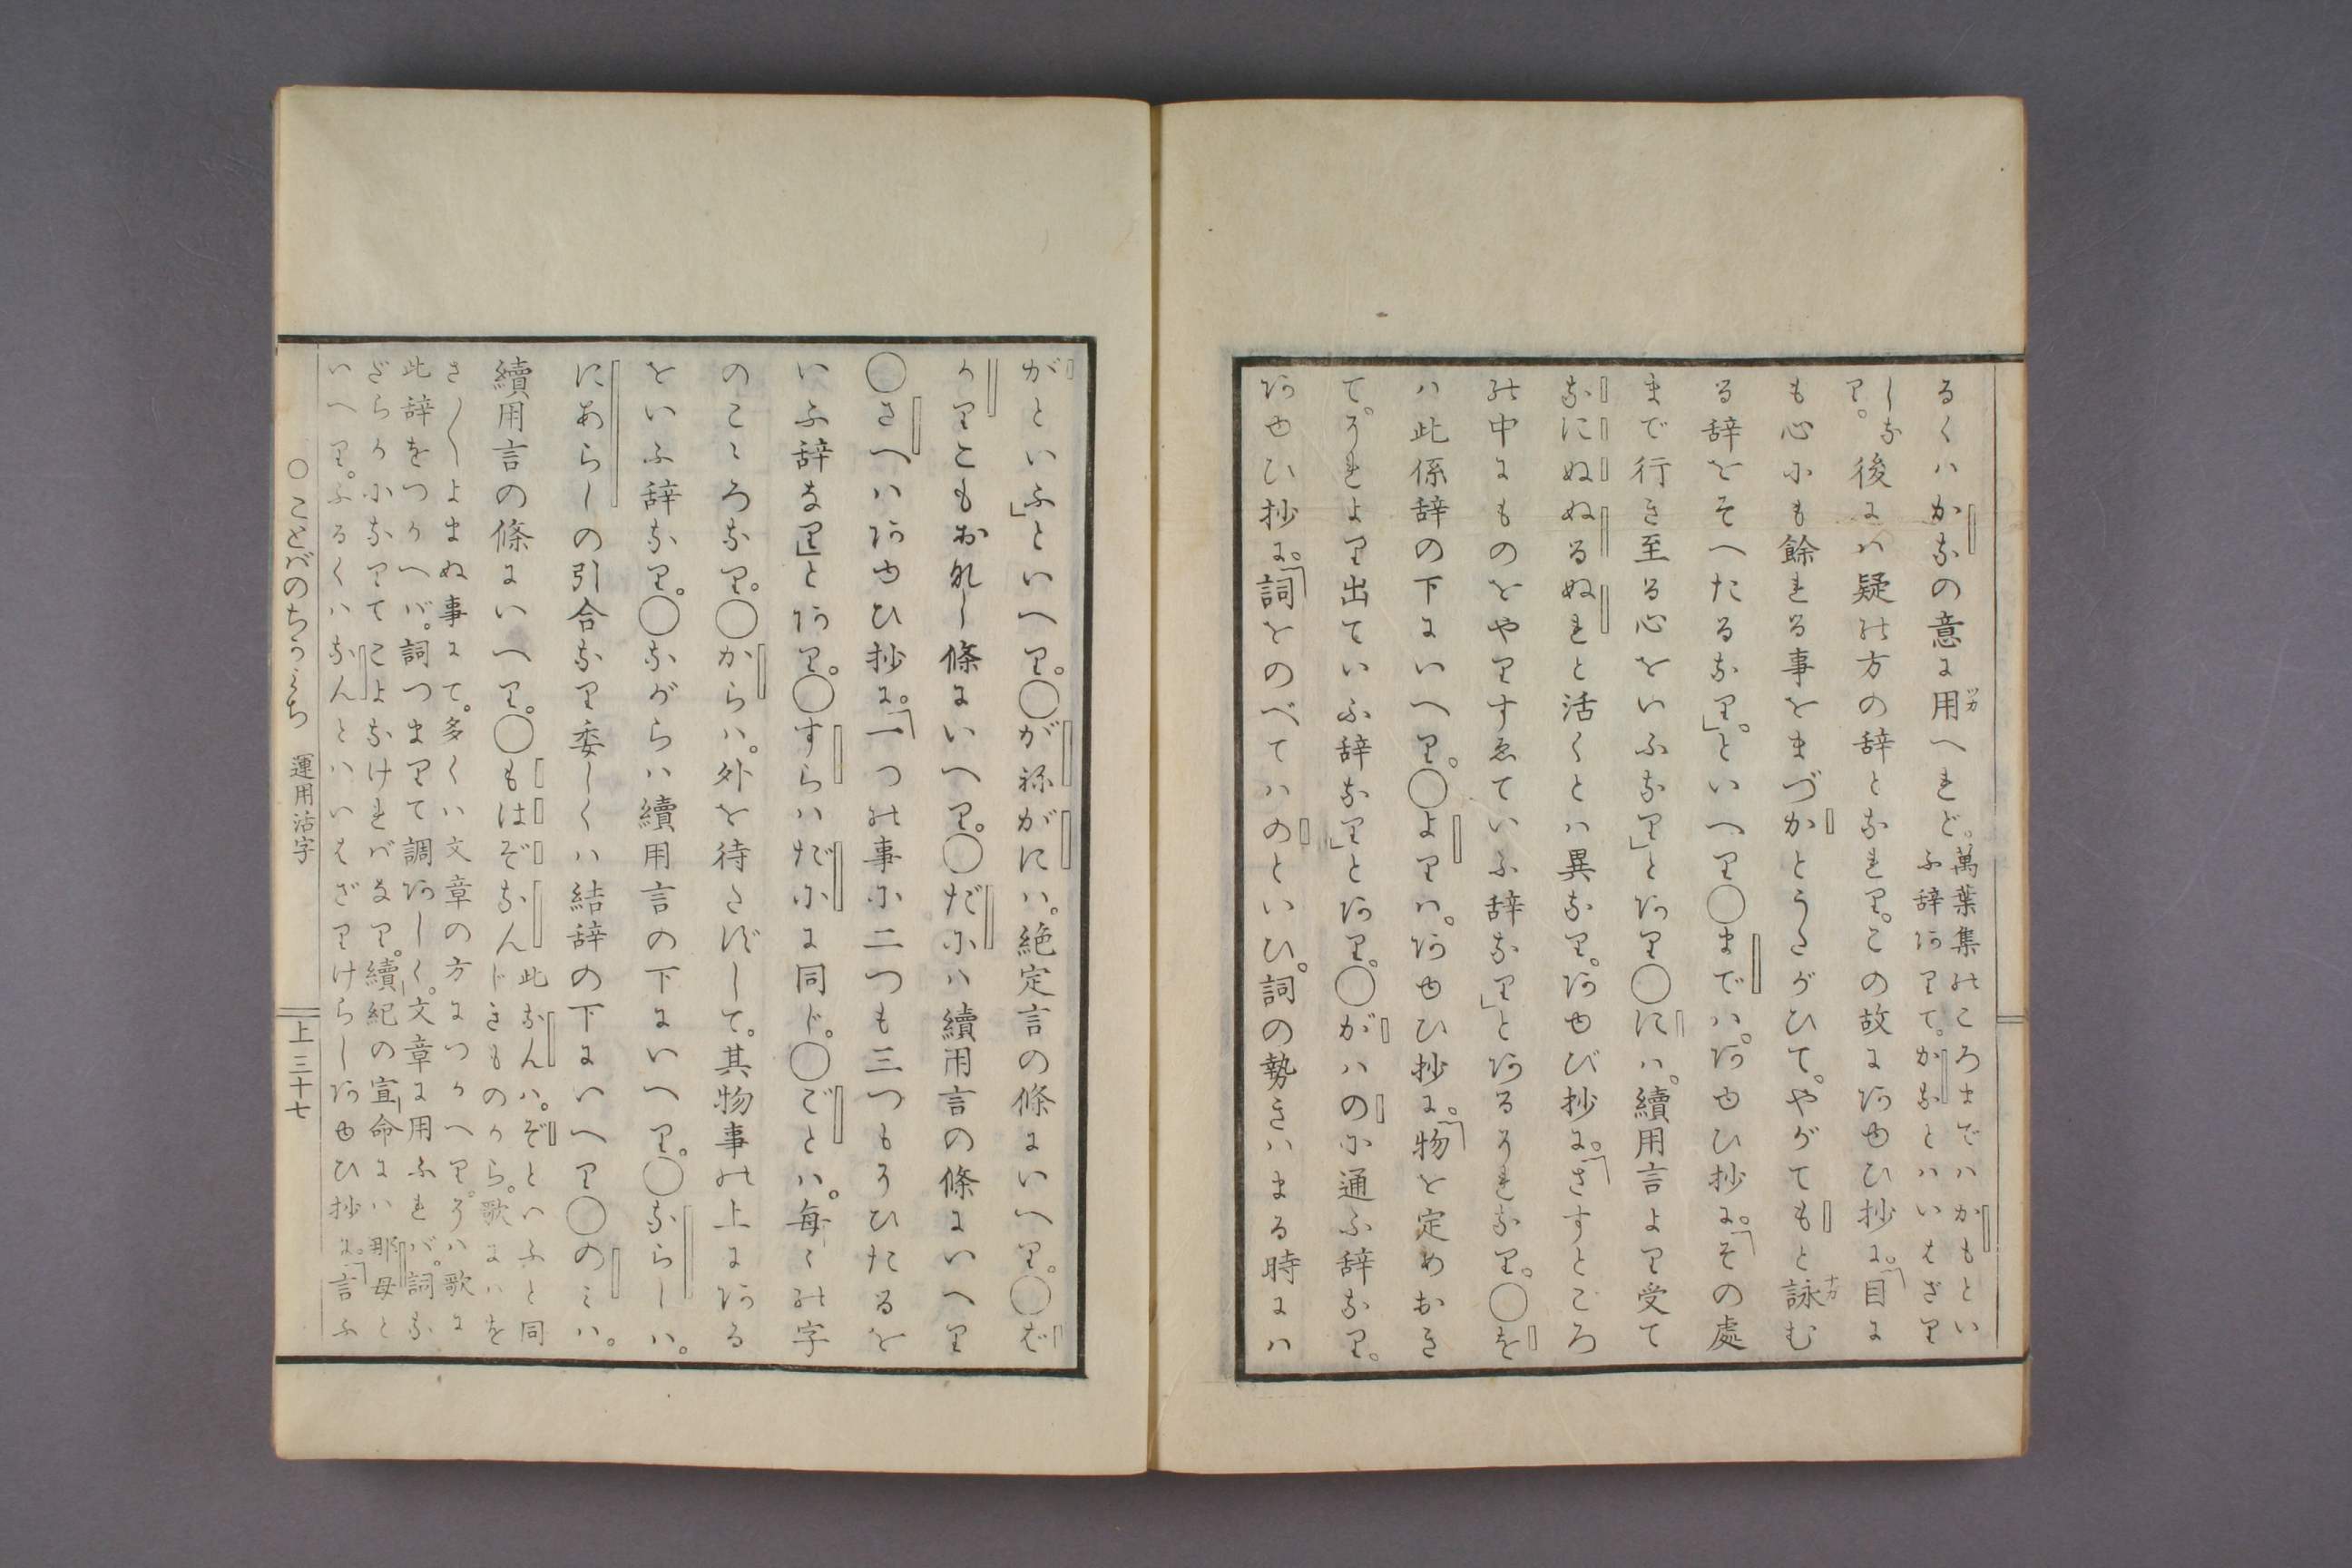 るくハかなの意に用へれど。萬葉集のころまでハかもとい
ふ辞ありて。かなとハいはざり
しなり。後にハ疑の方の辞となれり。この故にあゆひ抄に。「目に
も心にも餘れる事をまづかとうたがひて。やがてもと詠む
る辞をそへたるなり」。といへり○までハ。あゆひ抄に。「その處
まで行き至る心をいふなり」とあり○にハ。續用言より受て
なにぬぬるぬれと活くとハ異なり。あゆび抄に。「さすところ
の中にものをやりすゑていふ辞なり」とあるうれなり。○を
ハ此係辞の下にいへり。○よりハ。あゆひ抄に。「物を定めおき
て。うれより出ていふ辞なり」とあり。○がハのに通ふ辞なり。
あゆひ抄に。「詞をのべてハのといひ。詞の勢きハまる時にハ
がといふ」といへり。○が祢がにハ。絶定言の條にいへり。○ば
かりともおなし條にいへり。○だにハ續用言の條にいへり
○さへハあゆひ抄に。「一つの事に二つも三つもうひたるを
いふ辞なり」とあり。○すらハだにに同ド。○ごとハ。毎〻の字
のこゝろなり。○からハ。外を待たずして。其物事の上にある
をいふ辞なり。○ながらハ續用言の下にいへり。○ならしハ。
にあらしの引合なり委しくハ結辞の下にいへり○のミハ。
續用言の條にいへり。○もはぞなん此なんハ。ぞといふと同
じきものから。歌にハを
さ〳〵よまぬ事にて。多くハ文章の方につかへり。うハ歌に
此辞をつかへバ。詞つまりて調あしく。文章に用ふれバ。詞な
だらかになりてこよなけれバなり。「續紀の宣命」にハ那母と
いへり。ふるくハなんといはざりけらしあゆひ抄に。「言ふ
○ことばのちかみち　運用活字　上三十七